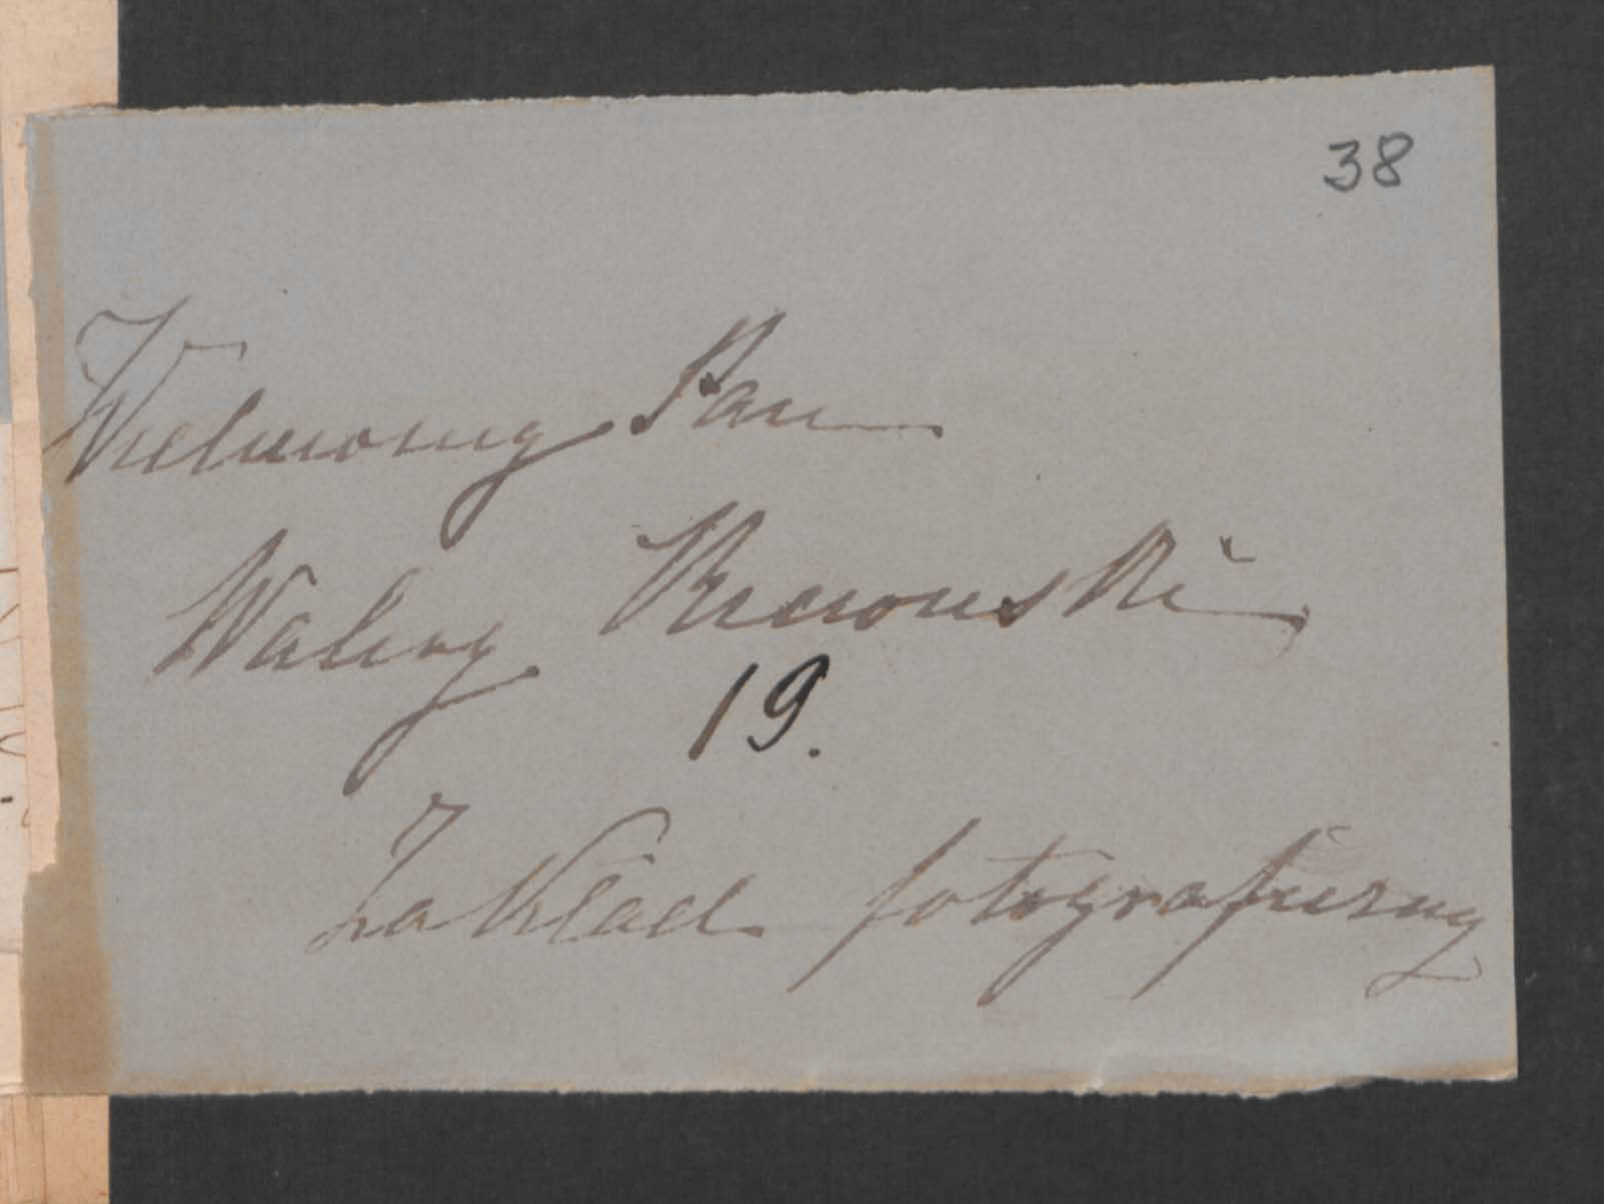 38
Wielmożny Pan
Walery Rzewuski
19.
Zakład fotograficzny